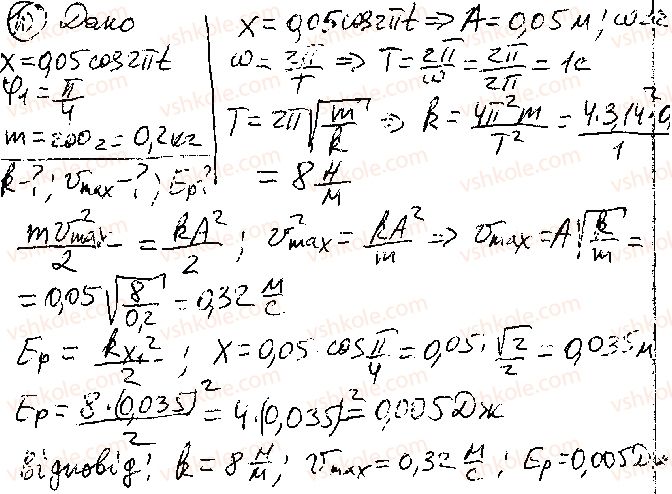 10 Дано
x = 0,05 cos 2πt
φ₁ = π/4
m = 200 г = 0,2 кг
k - ?; v_max - ?; E_p - ?
x = 0,05 cos 2πt ⇒ A = 0,05 м; ω = 2
ω = 2π/T ⇒ T = 2π/ω = 2π/2π = 1 с
T = 2π √(m/k) ⇒ k = 4π²m/T² = 4·3,14²·0,/1
= 8 Н/м
mv²_max/2 = kA²/2; v²_max = kA²/m ⇒ v_max = A√(k/m) =
= 0,05 √(8/0,2) = 0,32 м/с
E_p = kx²/2; x = 0,05 cos π/4 = 0,05 · √2/2 = 0,035 м
E_p = 8·(0,035)²/2 = 4·(0,035)² = 0,005 Дж
Відповідь: k = 8 Н/м; v_max = 0,32 м/с; E_p = 0,005 Дж